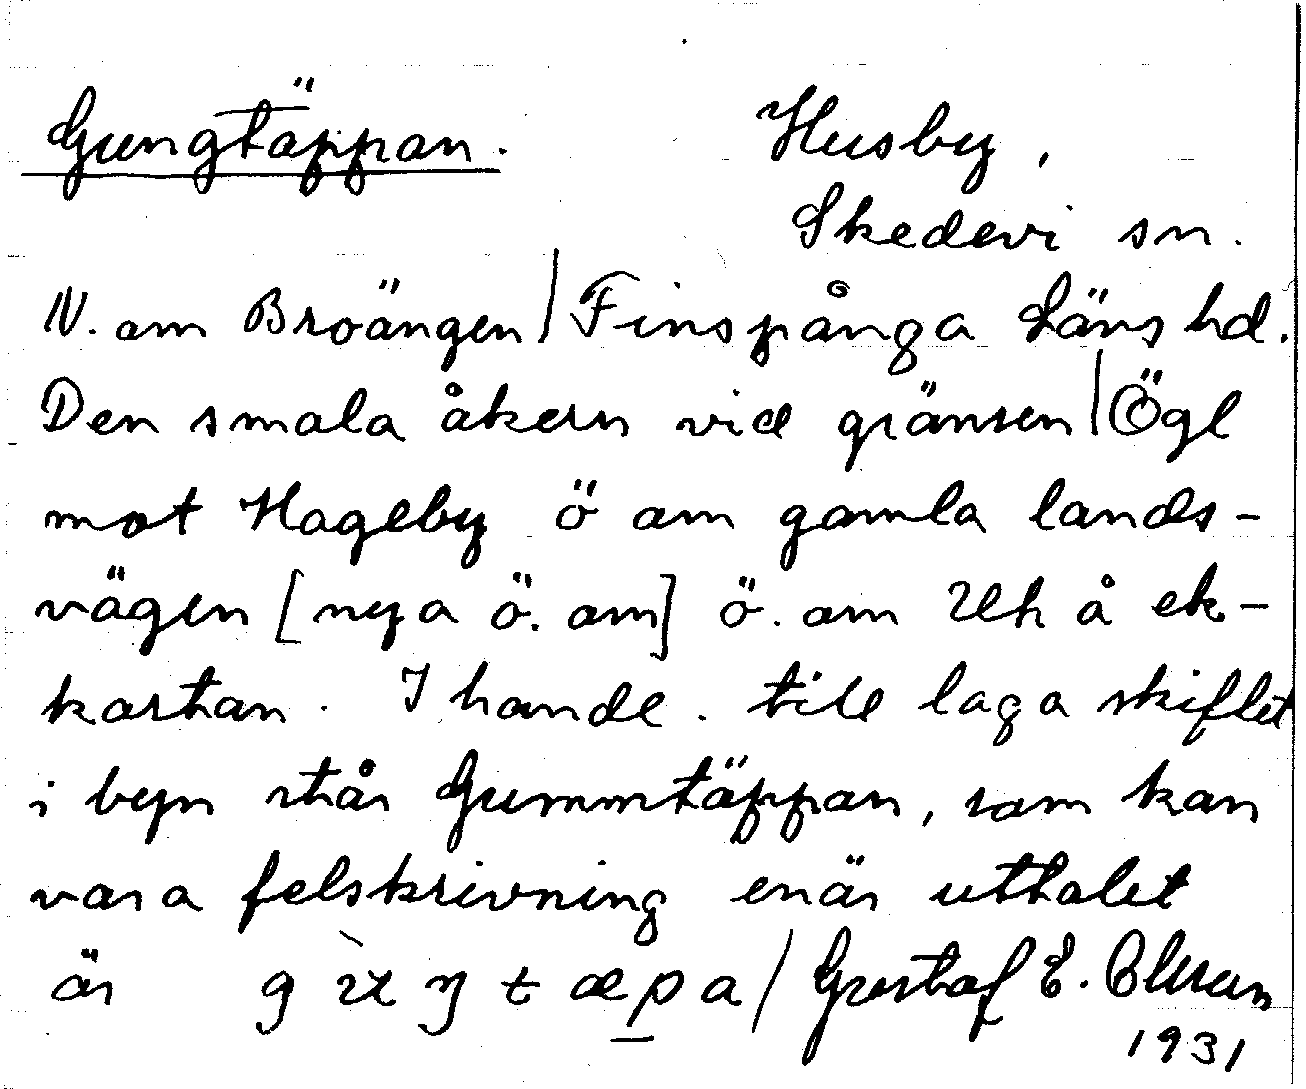 Gungtäppan.
Husby,
Skedevi sn.
N. om Broängen / Finspånga Läns hd.
Den smala åkern vid gränsen / Ögl
mot Hageby ö om gamla lands-
vägen [nya ö. om] ö. om Uh å ek-
kartan. I handl. till laga skiftet
i byn står Gummtäppan, som kan
vara felskrivning enär uttalet
är
/ Gustaf E. Olsson
1931